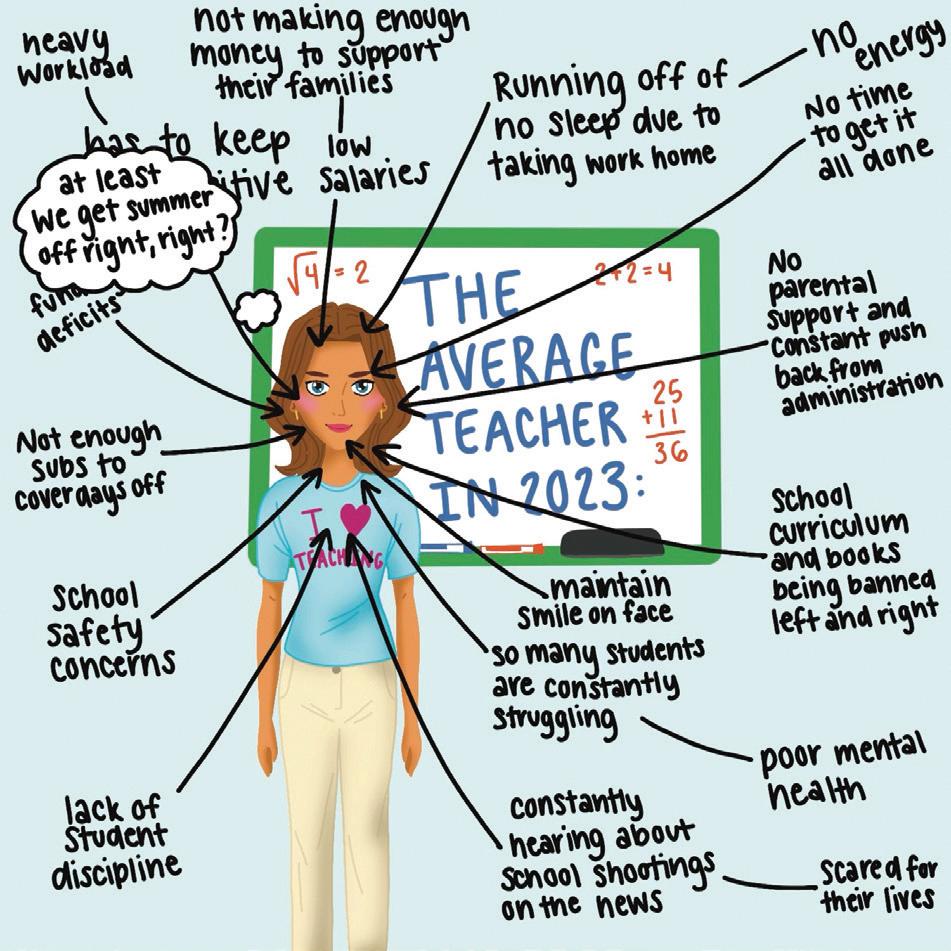 heavy
workload
not making enough
money to support
their families
low
salaries
has to keep
at least
we get summer
off right, right?
deficits
Running off of
no sleep due to
taking work home
no
energy
No time
to get it
all done
√4 = 2
2+2=4
THE
AVERAGE
TEACHER
IN 2023:
25
+11
36
No
parental
support and
constant push
back from
administration
Not enough
subs to
cover days off
I ♥
TEACHING
School
safety
concerns
maintain
smile on face
School
curriculum
and books
being banned
left and right
so many students
are constantly
struggling
poor mental
health
lack of
student
discipline
constantly
hearing about
school shootings
on the news
scared for
their lives